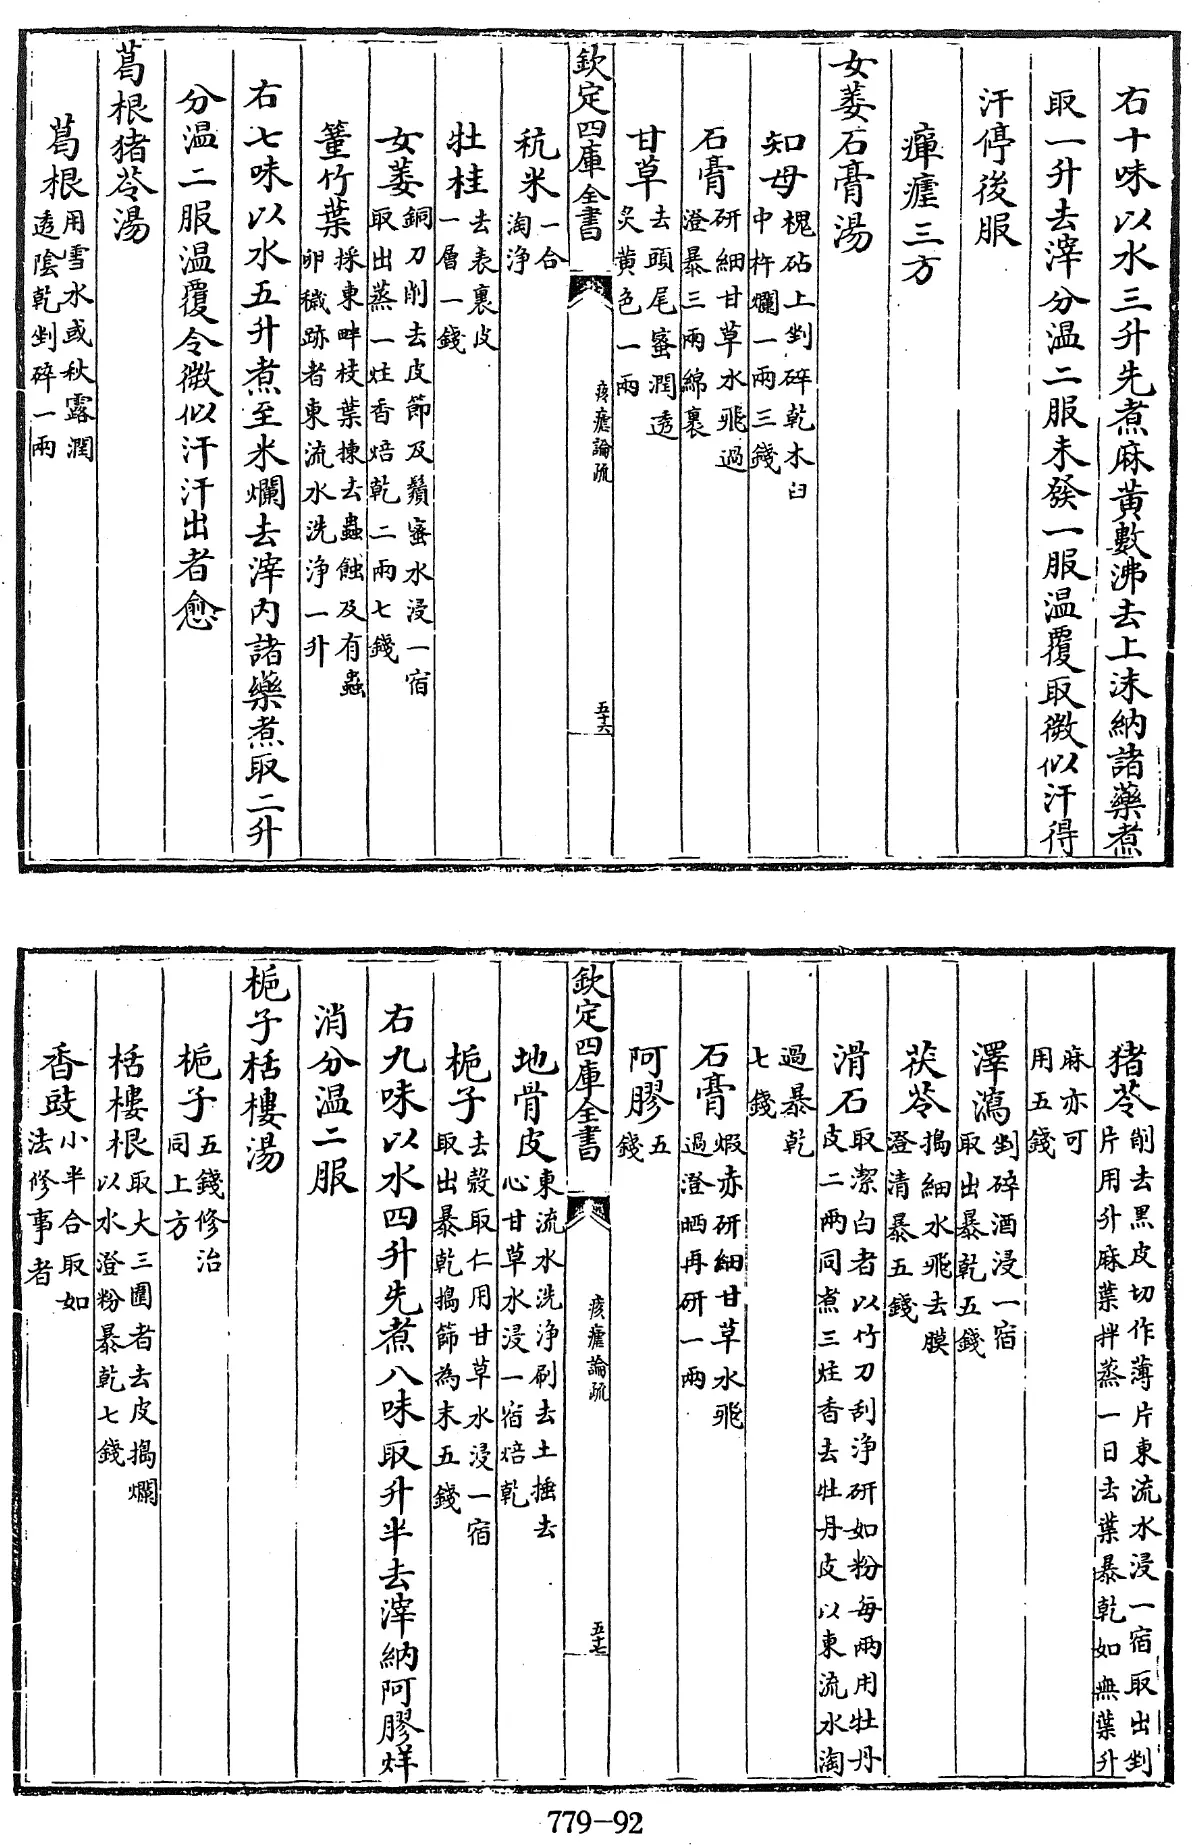 右十味以水三升先煮麻黄數沸去上沫納諸藥煮
取一升去滓分温二服未發一服温覆取微似汗得
汗停後服
瘅瘧三方
女萎石膏湯
知母槐砧上剉碎乾木臼
中杵爛一兩三錢
石膏研細甘草水飛過
澄暴三兩綿裹
甘草去頭尾蜜潤透
炙黄色一兩
欽定四庫全書
痎瘧論疏
五十六
秔米一合
淘淨
牡桂去表裏皮
一層一錢
女萎銅刀削去皮節及鬚蜜水浸一宿
取出蒸一炷香焙乾二兩七錢
篁竹葉採東畔枝葉揀去蟲蝕及有蟲
卵穢跡者東流水洗淨一升
右七味以水五升煮至米爛去滓内諸藥煮取二升
分温二服温覆令微似汗汗出者愈
葛根猪苓湯
葛根用雪水或秋露潤
透陰乾剉碎一兩
猪苓削去黑皮切作薄片東流水浸一宿取出剉
片用升麻葉拌蒸一日去葉暴乾如無葉升
麻亦可
用五錢
澤瀉剉碎酒浸一宿
取出暴乾五錢
茯苓搗細水飛去膜
澄清暴五錢
滑石取潔白者以竹刀刮淨研如粉每兩用牡丹
皮二兩同煮三炷香去牡丹皮以東流水淘
過暴乾
七錢
石膏煆赤研細甘草水飛
過澄晒再研一兩
阿膠五
錢
欽定四庫全書
痎瘧論疏
五十七
地骨皮東流水洗淨刷去土捶去
心甘草水浸一宿焙乾
梔子去殼取仁用甘草水浸一宿
取出暴乾搗篩為末五錢
右九味以水四升先煮八味取升半去滓納阿膠烊
消分温二服
梔子栝樓湯
梔子五錢修治
同上方
栝樓根取大三圍者去皮搗爛
以水澄粉暴乾七錢
香豉小半合取如
法修事者
779-92